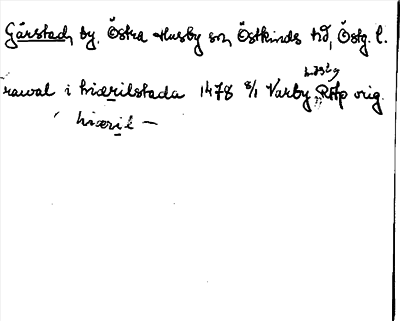 Gärstad, by. Östra Husby sn Östkinds hd, Östg. l.
rawal i hiærilstada 1478 8/1 Varby RAp orig.
hiæril —